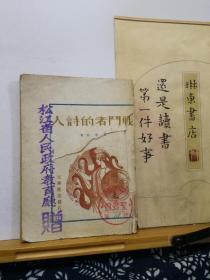 人詩的者鬥戰
松江省人民政府教育廳
贈
琳東書店
還是讀書
第一件好事